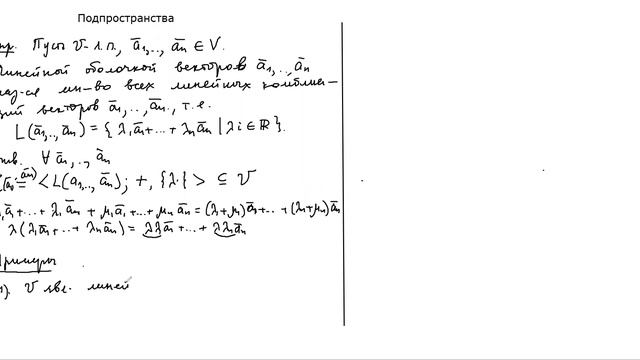 Подпространства
пр. Пусть V - л.п., a̅₁,.., a̅ₙ ∈ V.
линейной оболочкой векторов a̅₁,.., a̅ₙ
наз-ся мн-во всех линейных комбина-
ций векторов a̅₁,.., a̅ₙ, т.е.
L(a̅₁,.., a̅ₙ) = { λ₁a̅₁+...+ λₙa̅ₙ | λi ∈ ℝ}.
тв. ∀ a̅₁,.., a̅ₙ
= < L(a₁,.., a̅ₙ); +, {λ·} > ⊆ V
a̅₁+...+ λₙa̅ₙ + μ₁a̅₁+...+ μₙa̅ₙ = (λ₁+μ₁)a̅₁+..+ (λₙ+μₙ)a̅ₙ
λ(λ₁a̅₁+...+ λₙa̅ₙ) = λλ₁a̅₁+...+ λλₙa̅ₙ
Примеры
1). V явл. линей